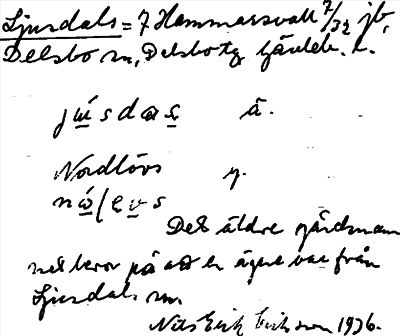 Ljusdals = 7 Hammarsvall 7/32 jb,
Delsbo sn, Delsbo tg Gävleb. l.
jús das ä.
Nordlövs y.
Det äldre gårdsnam
net beror på att en ägare var från
Ljusdals sn.
Nils Erik Eriksson 1936.